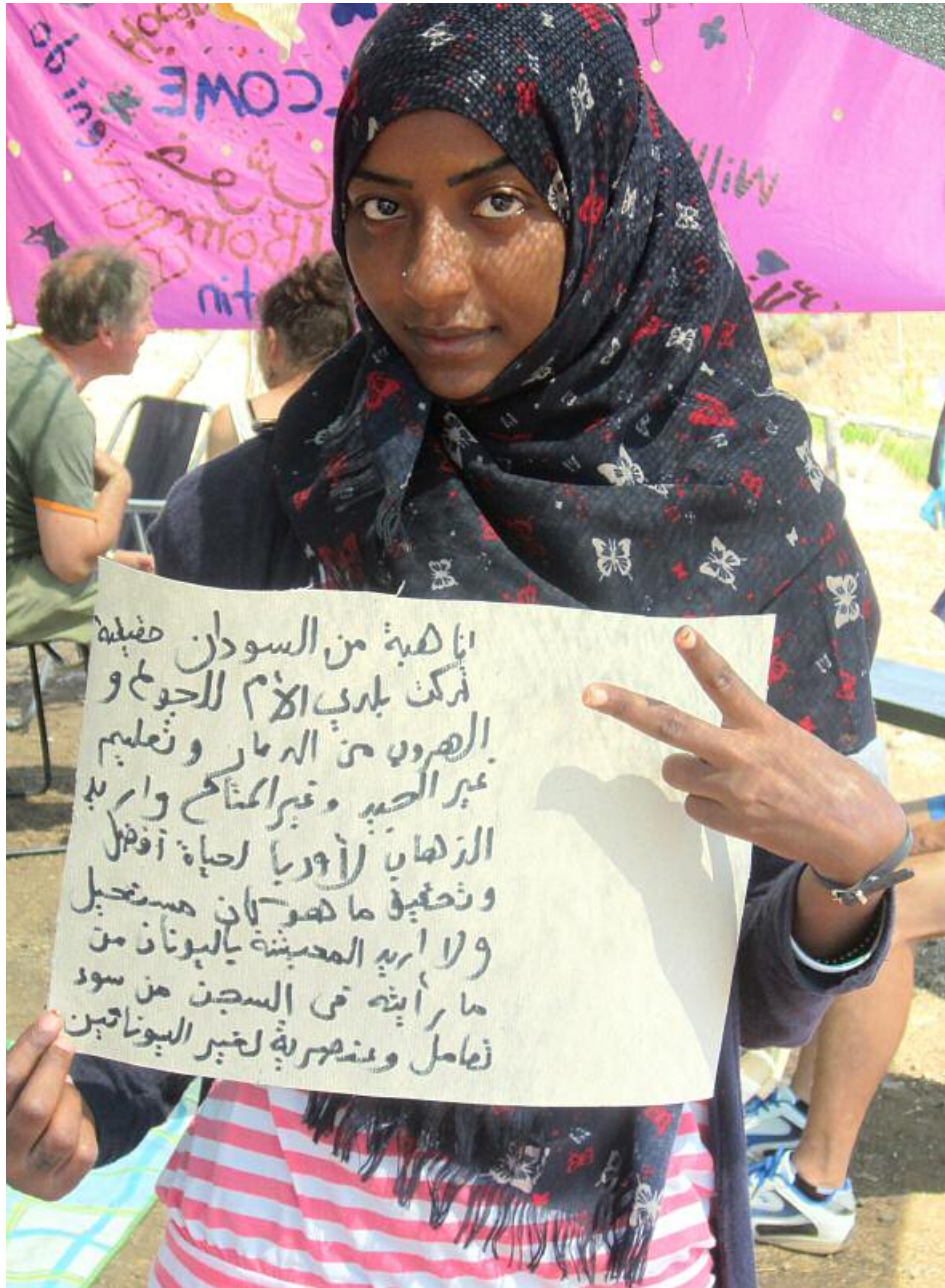 WELCOME
انا هبة من السودان حقيقية
تركت بلدي الأم للجوع و
الهروب من الدمار وتعليم
غير الجيد وغير المتاح واريد
الذهاب لأوربا لحياة أفضل
وتحقيق ما هو كان مستحيل
ولا اريد المعيشة باليونان من
ما رأيته في السجن من سوء
تعامل وعنصرية لغير اليونانين